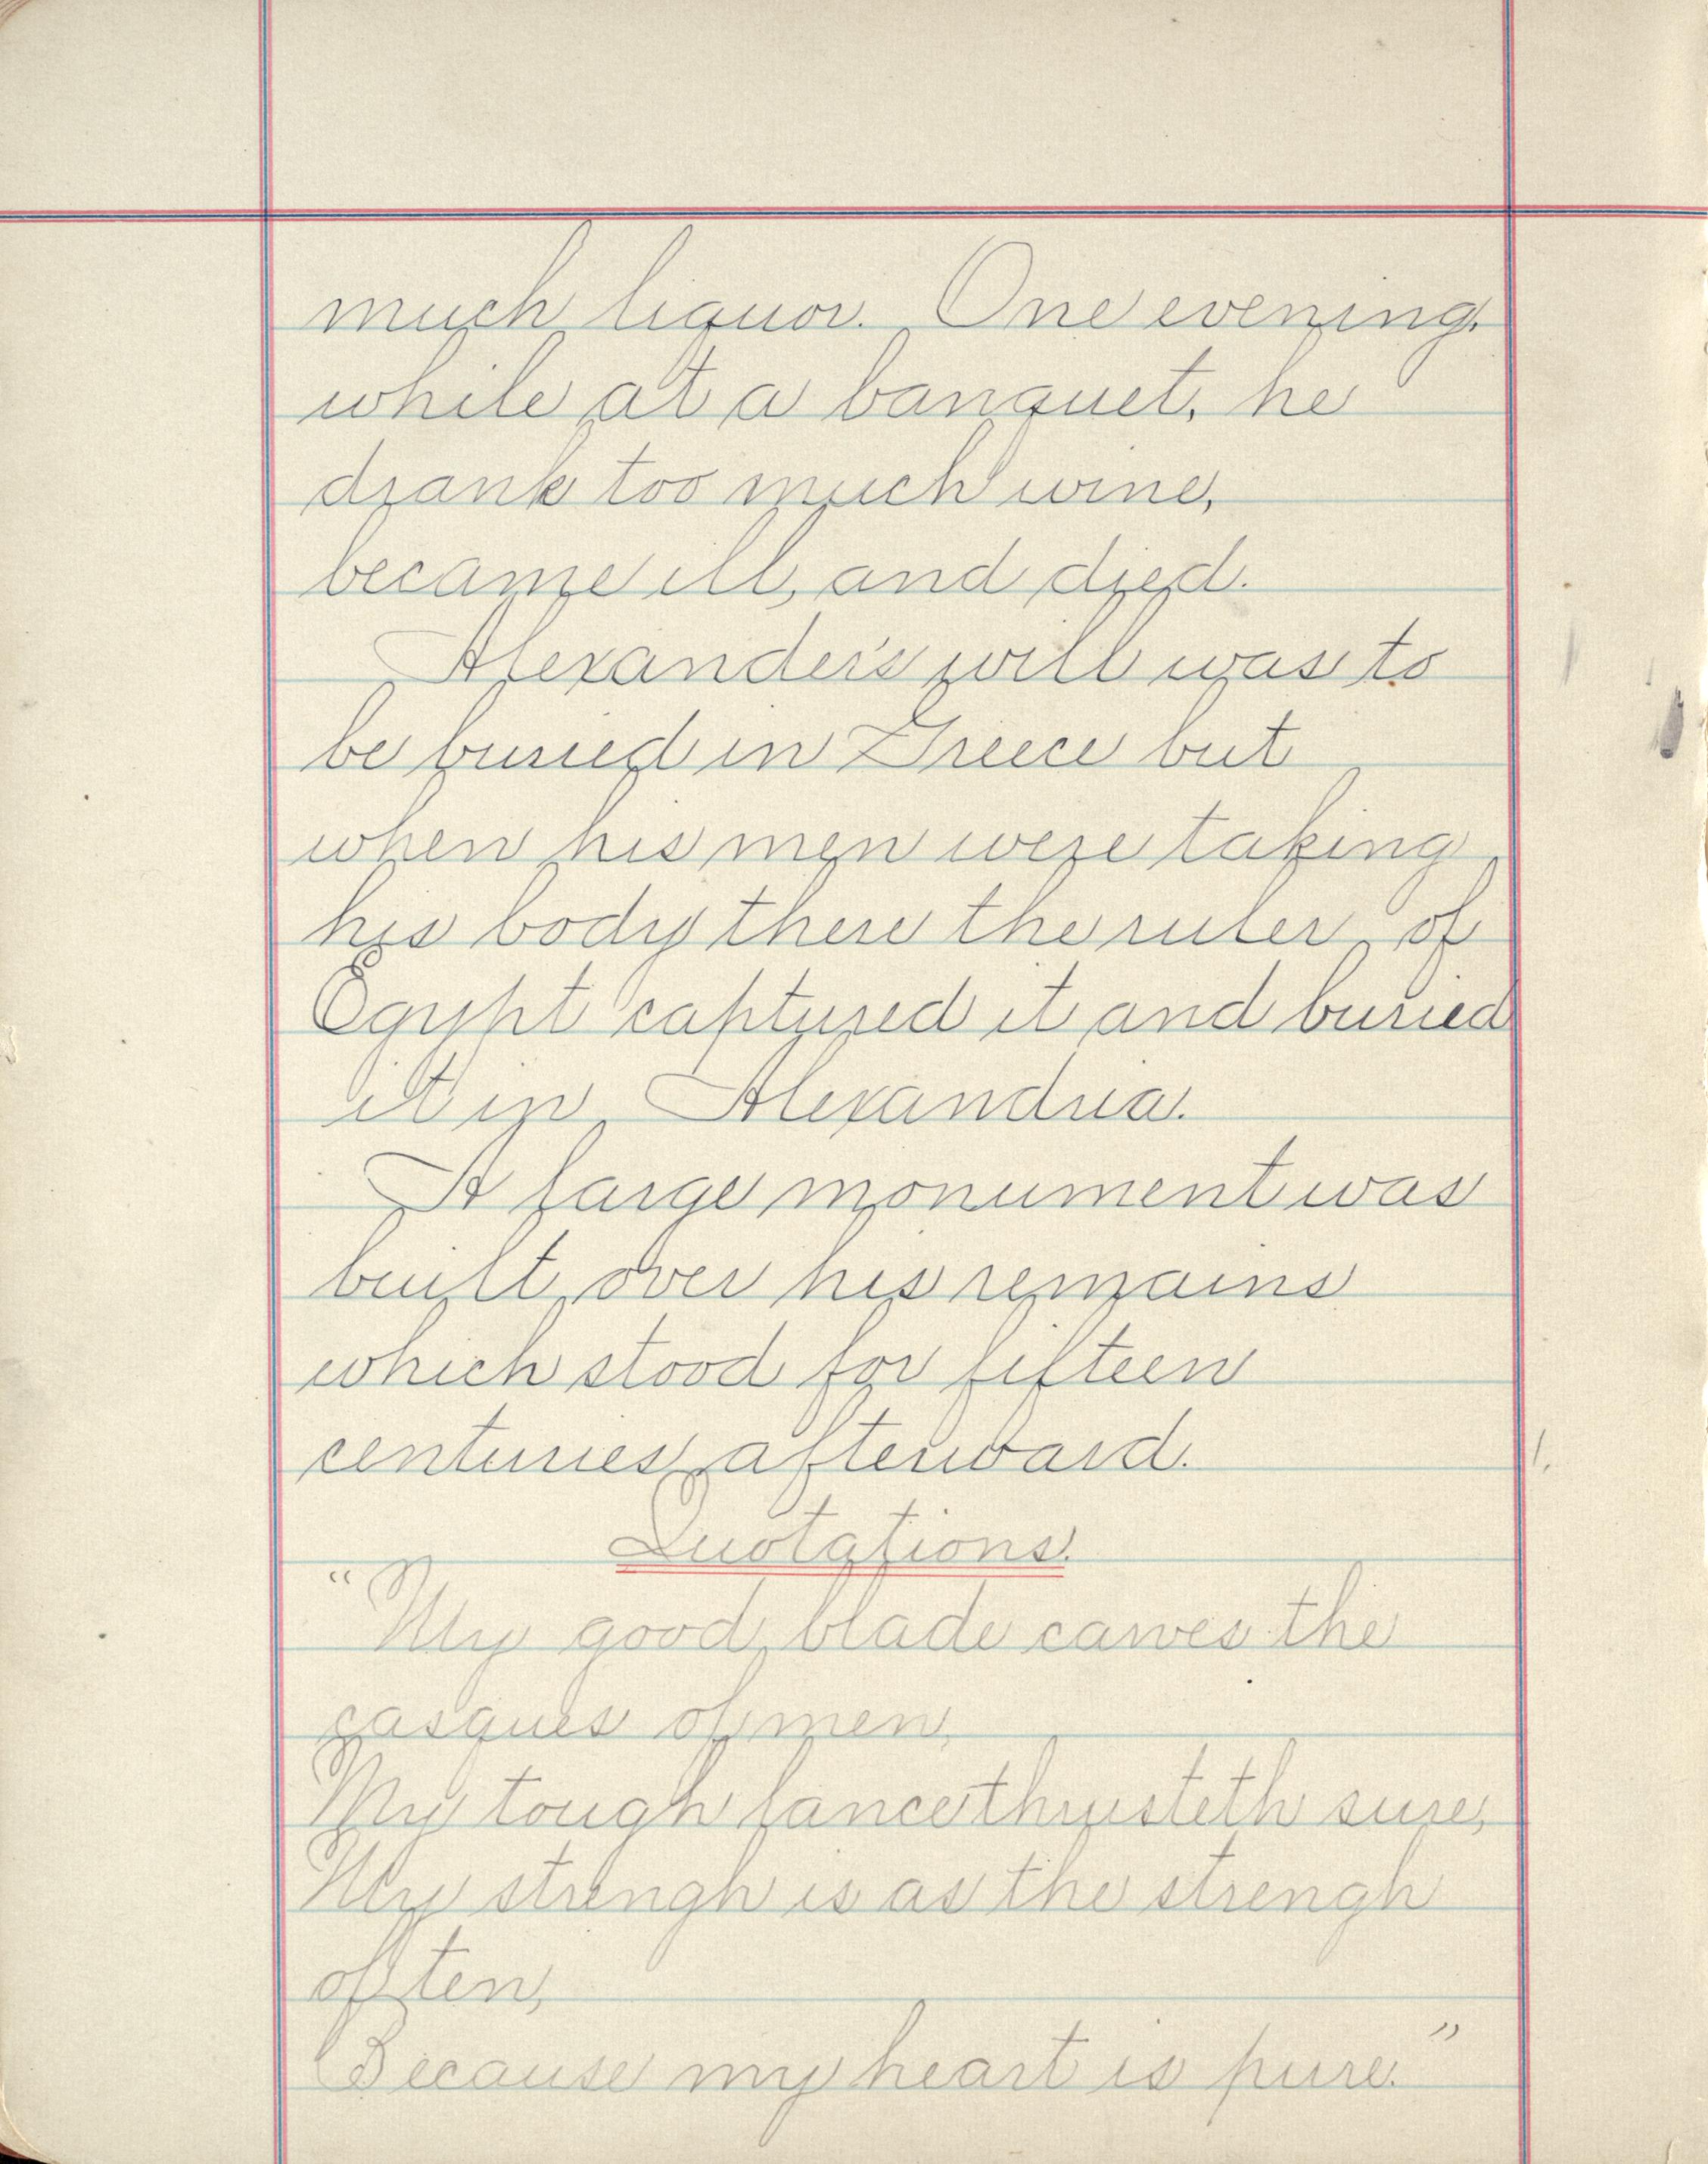 much liquor. One evening,
while at a banquet, he
drank too much wine,
became ill, and died.
Alexander's will was to
be buried in Greece but
when his men were taking
his body there the ruler of
Egypt captured it and buried
it in Alexandria.
A large monument was
built over his remains
which stood for fifteen
centuries afterward.
Quotations.
"My good blade carves the
casques of men,
My tough lance thrusteth sure,
My strengh is as the strengh
of ten,
Because my heart is pure."